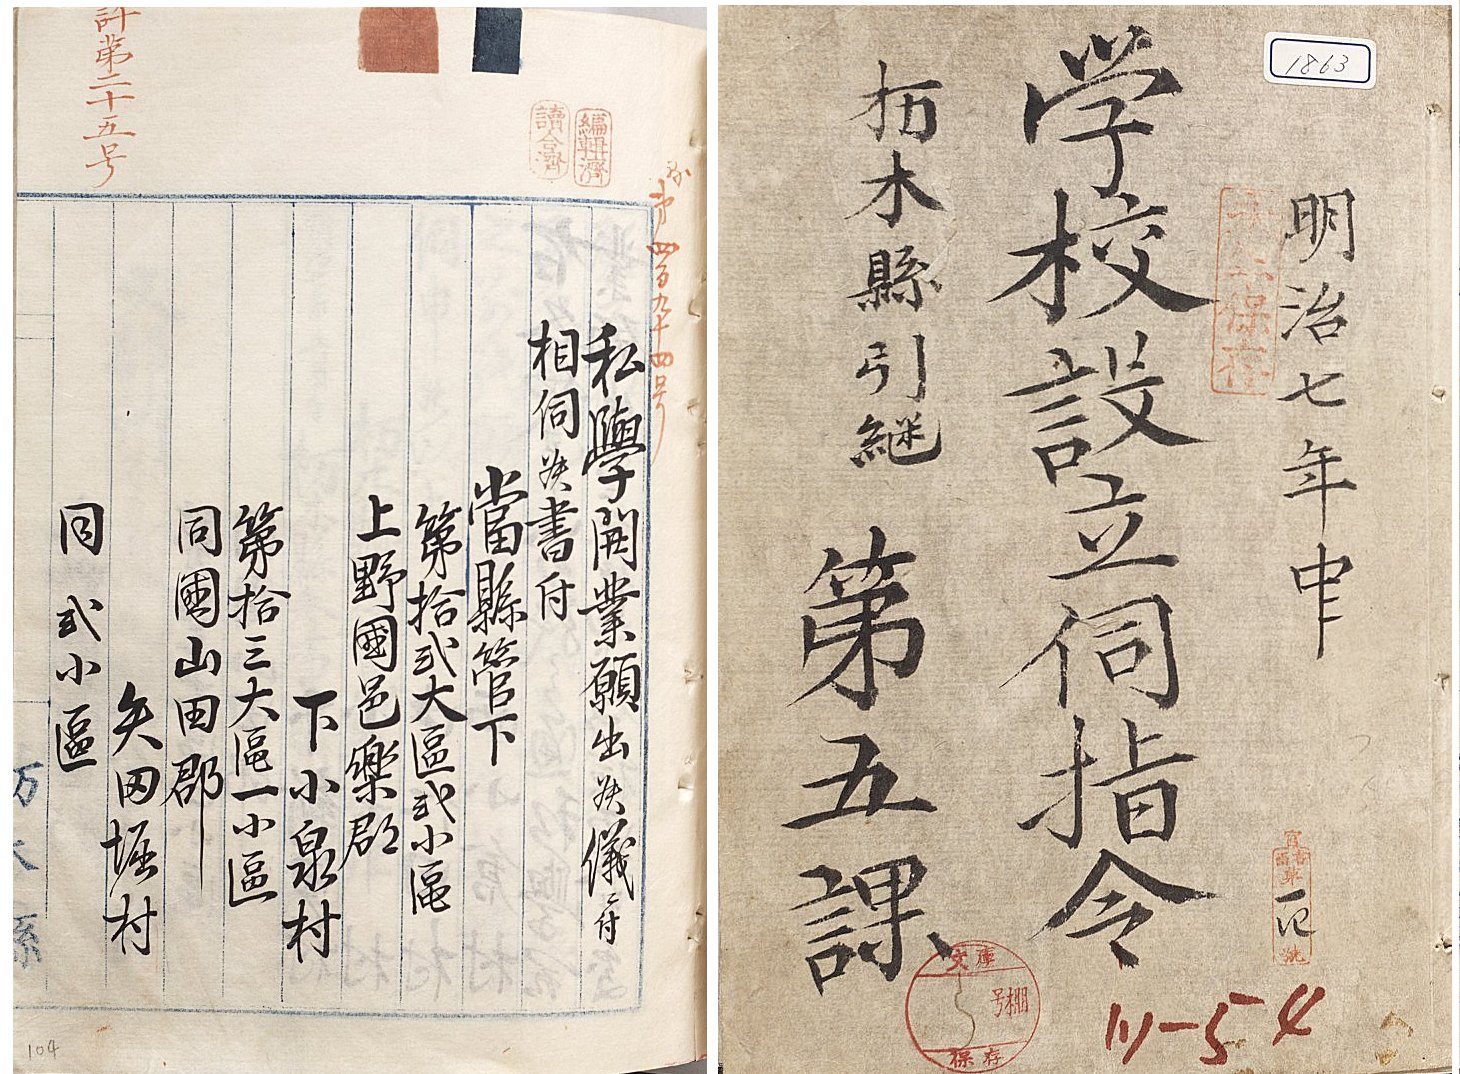 1863
明治七年中
永年保存
学校設立伺指令
栃木縣引継
第五課
文庫
号棚
保存
計第二十五号
編輯濟
讀合濟
第四百九十四号
私學開業願出候儀ニ付
相伺候書付
當縣管下
第拾弐大區弐小區
上野國邑樂郡
下小泉村
第拾三大區一小區
同國山田郡
矢田堀村
同弐小區
104